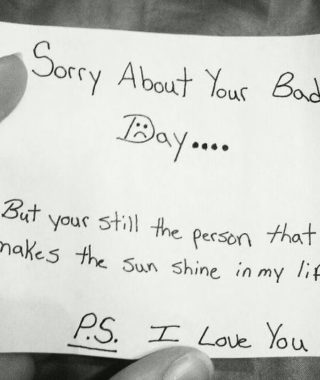 Sorry About Your Bad
Day....
But your still the person that
makes the sun shine in my lif
P.S. I Love You